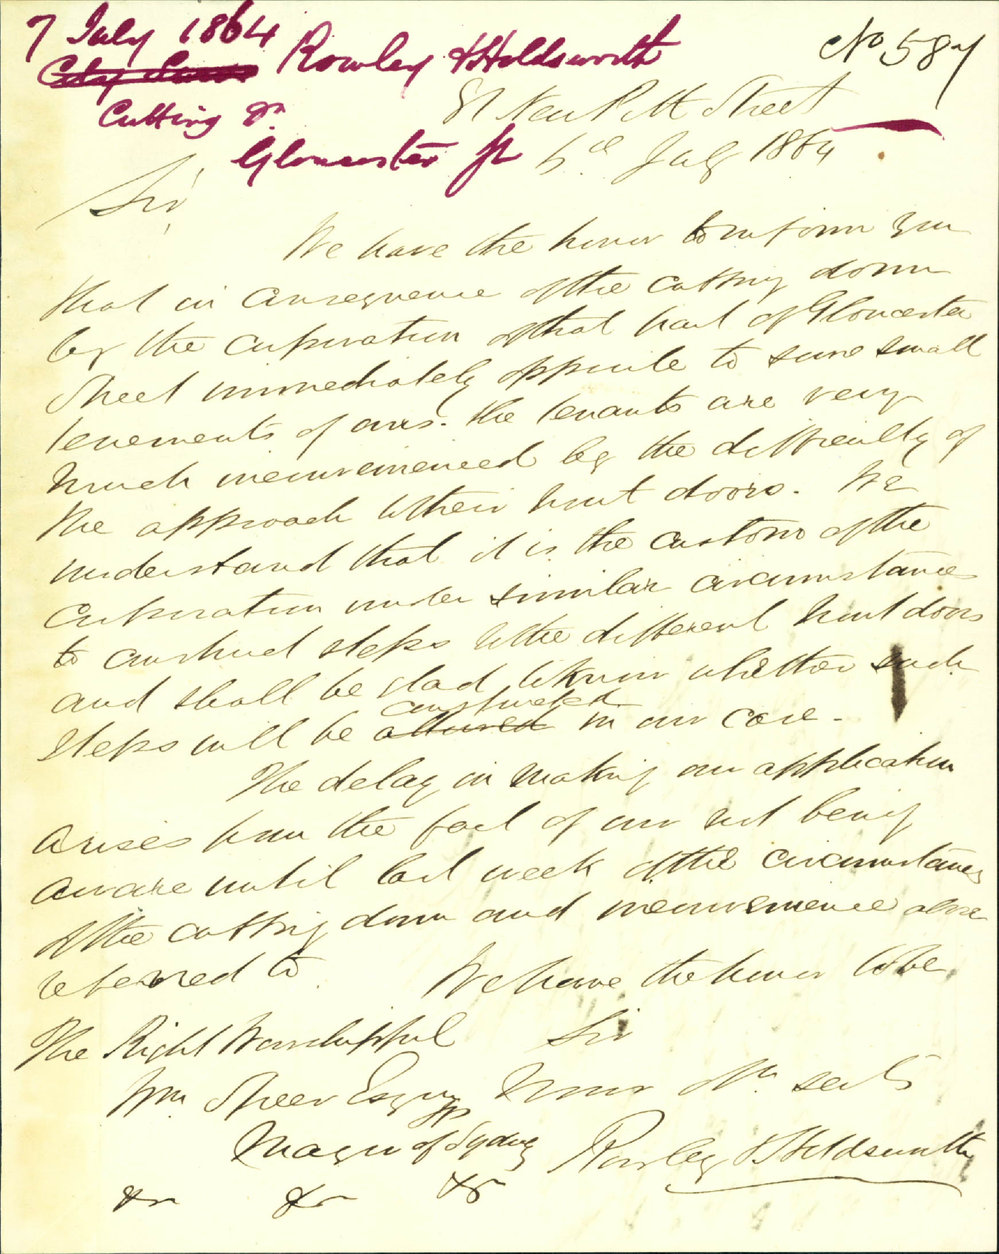 7 July 1864
Rowley & Holdsworth
No 587
Cutting &c
Gloucester St
81 New Pitt Street
6th July 1864
Sir
We have the honor to inform you
that in consequence of the cutting down
by the corporation of that part of Gloucester
Street immediately opposite to some small
tenements of ours. the tenants are very
much inconvenienced by the difficulty of
the approach to their front doors. We
understand that it is the custom of the
corporation under similar circumstances
to construct steps to the different front doors
and shall be glad to know whether such
steps will be allowed constructed in our case.
The delay in making our application
arises from the fact of our not being
aware until last week of the circumstances
of the cutting down and inconvenience above
referred to
We have the honor to be
The Right Worshipful
Sir
Wm Speer Esqre JP
Your Ob. servts
Mayor of Sydney
Rowley & Holdsworth
&c &c &c